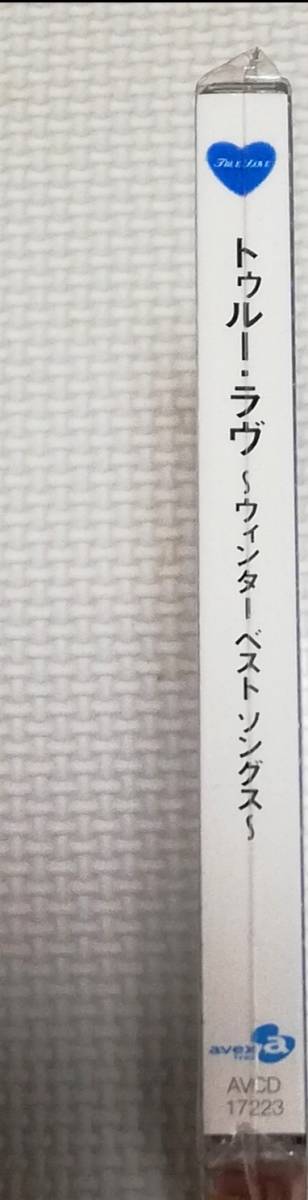 TRUE LOVE
トゥルー・ラヴ ～ウィンター ベスト ソングス～
avex trax
AVCD
17223